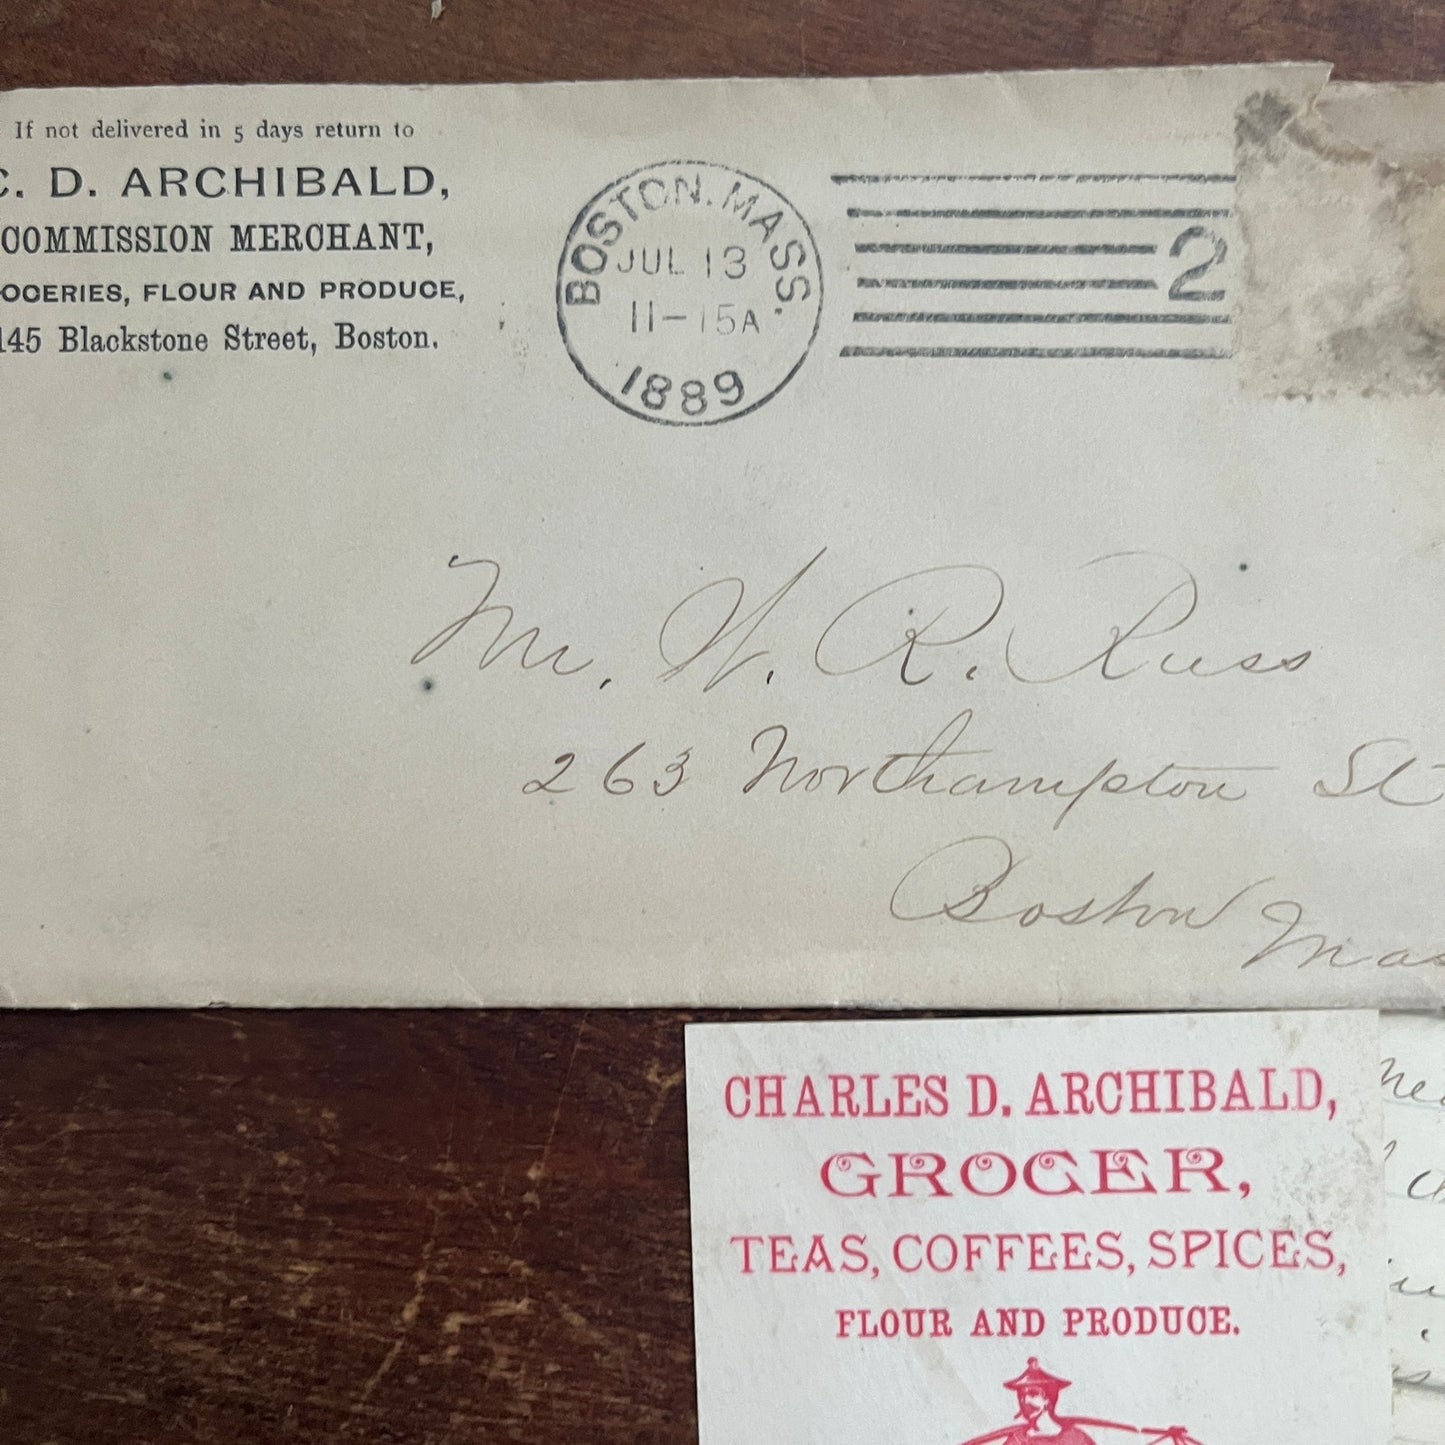 If not delivered in 5 days return to
C. D. ARCHIBALD,
COMMISSION MERCHANT,
OCERIES, FLOUR AND PRODUCE,
145 Blackstone Street, Boston.
BOSTON. MASS.
JUL 13
11-15A
1889
2
Mr. W. R. Russ
263 Northampton St
Boston
Mas
CHARLES D. ARCHIBALD,
GROCER,
TEAS, COFFEES, SPICES,
FLOUR AND PRODUCE.